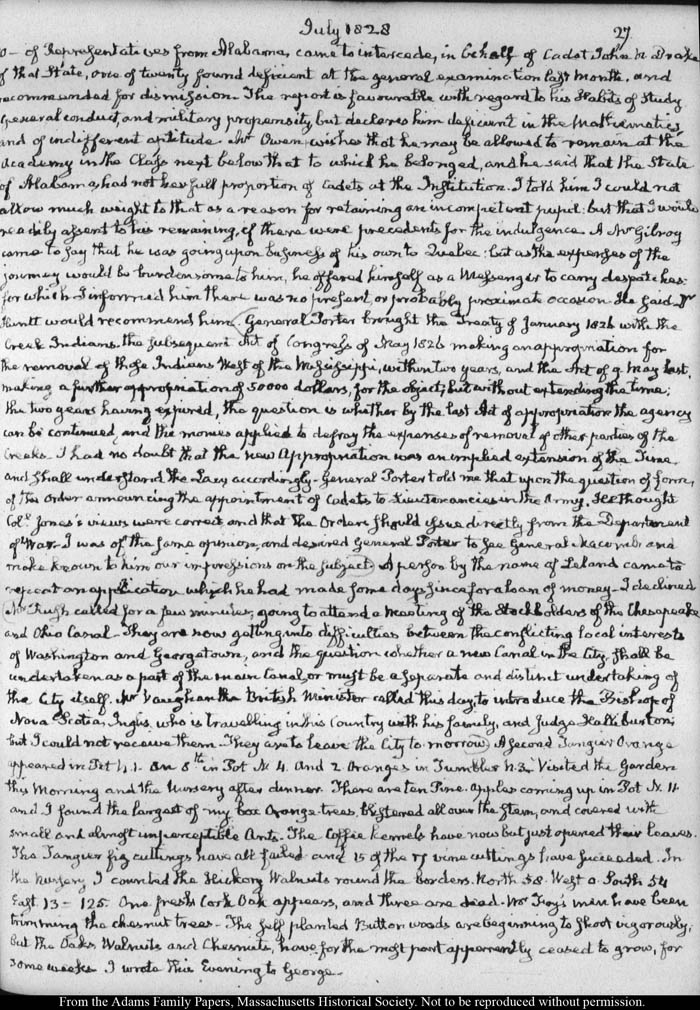 July 1828 27
of Representatives from Alabama, came to intercede, in behalf of Cadet John R Drake
of that State, one of twenty found deficient at the general examination last month, and
recommended for dismission. The report is favourable with regard to his Habits of Study
general conduct, and military propensity, but declares him deficient in the Mathematics,
and of indifferent aptitude. Mr Owen wishes that he may be allowed to remain at the
Academy in the Class next below that to which he belonged, and he said that the State
of Alabama, had not her full proportion of Cadets at the Institution. I told him I could not
allow much weight to that as a reason for retaining an incompetent pupil: but that I would
readily assent to his remaining, if there were precedents for the indulgence. A Mr Gilroy
came to say that he was going upon business of his own to Quebec: but as the expenses of the
journey would be burdensome to him, he offered himself as a Messenger to carry despatches:
for which I informed him there was no present, or probably proximate occasion. He said Dr
Huntt would recommend him. General Porter brought the Treaty of January 1826 with the
Creek Indians. the subsequent Act of Congress of May 1826 making an appropriation for
the removal of those Indians West of the Mississippi, within two years, and the Act of 9 May last,
making a further appropriation of 50000 dollars, for the object, but without extending the time;
the two years having expired, the question is whether by the last Act of appropriation the agency
can be continued, and the monies applied to defray the expenses of removal of other parties of the
Creeks. I had no doubt that the new Appropriation was an implied extension of the Time
and shall understand the Law accordingly. General Porter told me that upon the question of form,
of the Order announcing the appointment of Cadets to Lieutenancies in the Army, He thought
Coll. Jones's views were correct, and that the Orders should issue directly from the Department
of War. I was of the same opinion, and desired General Porter to see General Macomb, and
make known to him our impressions on the subject. A person by the name of Leland came to
repeat an application which he had made some days since for a loan of money. I declined
Mr Rush called for a few minutes, going to attend a Meeting of the Stockholders of the Chesapeake
and Ohio Canal. They are now getting into difficulties between the conflicting local interests
of Washington and Georgetown, and the question whether a new Canal in the City, shall be
undertaken as a part of the main Canal, or must be a separate and distinct undertaking of
the City itself. Mr Vaughan the British Minister called this day, to introduce the Bishop of
Nova-Scotia, Inglis, who is travelling in this Country with his family, and Judge Halliburton;
but I could not receive them. They are to leave the City to-morrow. A second Tangier Orange
appeared in Pot 41. an 8th in Pot N. 4. and 2 Oranges in Tumbler N. 3. Visited the Garden
this Morning and the Nursery after dinner. There are ten Pine-Apples coming up in Pot N. 11.
and I found the largest of my box Orange-trees, blistered all over the stem, and covered with
small and almost imperceptible Ants. The Coffee kernels have now but just opened their leaves.
The Tangier fig cuttings have all failed and 15 of the 17 vine cuttings have succeeded. In
the nursery I counted the Hickory Walnuts round the borders. North 58. West 0. South 54
East. 13 = 125. One fresh Cork Oak appears, and three are dead. Mr Foy's men have been
trimming the chesnut trees. The self planted Button woods are beginning to shoot vigorously,
but the Oaks, Walnuts and Chesnuts, have for the most part apparently ceased to grow, for
some weeks. I wrote this Evening to George.
From the Adams Family Papers, Massachusetts Historical Society. Not to be reproduced without permission.